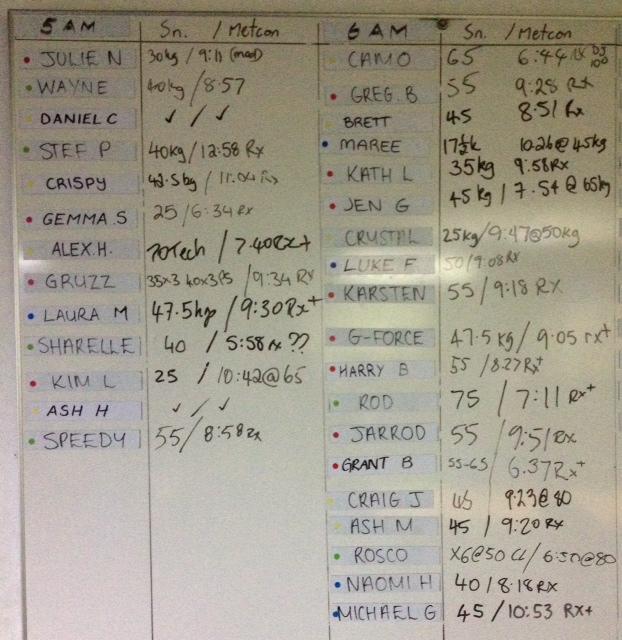 5 AM Sn. / Metcon
JULIE N 30kg / 9:11 (mod)
WAYNE 40kg / 8:57
DANIEL C ✓ / ✓
STEF P 40kg / 12:58 Rx
CRISPY 42.5kg / 11:04 Rx
GEMMA.S 25 / 6:34 Rx
ALEX.H. 70Tech / 7.40Rx+
GRUZZ 35x3 40x3 / 9:34 RX
LAURA M 47.5kg / 9:30Rx+
SHARELLE 40 / 5:58 Rx ??
KIM L 25 / 10:42@65
ASH H ✓ / ✓
SPEEDY 55 / 8:58 Rx
6 AM Sn. / Metcon
CAMO 65 6:44 Rx DJ 100
GREG.B 55 9:28 Rx
BRETT 45 8:51 Rx
MAREE 17½k 10.26@45kg
KATH L 35kg 9:58Rx
JEN G 45 kg / 7.54 @ 65kg
CRYSTAL 25kg/9:47@50kg
LUKE F 50/9:08RX
KARSTEN 55 / 9:18 RX
G-FORCE 47.5 kg / 9.05 rx+
HARRY B 55 / 8.27Rx+
ROD 75 / 7:11 Rx+
JARROD 55 / 9:51 Rx
GRANT B 55-65 / 6.37Rx+
CRAIG J 45 9:23@80
ASH M 45 / 9:20 Rx
ROSCO X6@50 / 6:50@80
NAOMI H 40 / 8.18 RX
MICHAEL G 45 / 10:53 RX+